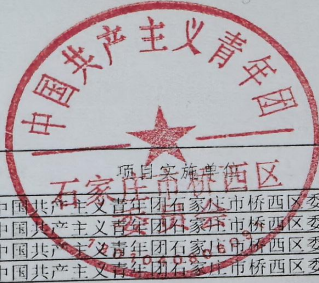 中国共产主义青年团
项目实施单位
石家庄市桥西区
委员会
中国共产主义青年团石家庄市桥西区委
中国共产主义青年团石家庄市桥西区委
中国共产主义青年团石家庄市桥西区委
中国共产主义青年团石家庄市桥西区委